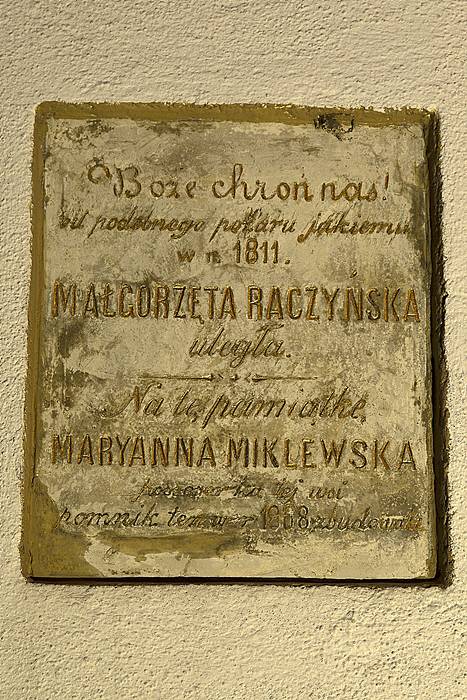 Boże chroń nas!
od podobnego pożaru jakiemu
w r. 1811.
MAŁGORZĘTA RACZYŃSKA
uległa.
Na tę pamiątkę
MARYANNA MIKLEWSKA
tej wsi
pomnik ten w r 1868 zbudowała